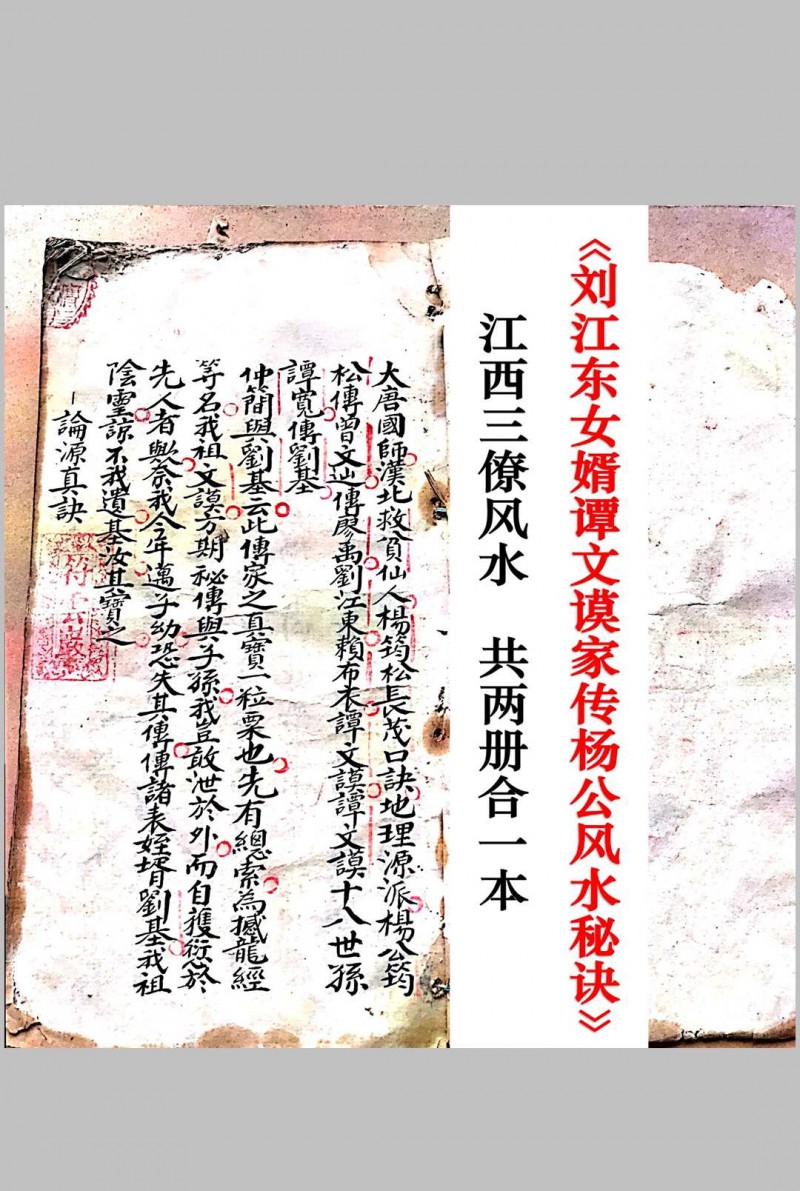 《刘江东女婿谭文谟家传杨公风水秘诀》
江西三僚风水 共两册合一本
大唐國師漢北救貧仙人楊筠松長茂口訣地理源派楊公筠
松傳曾文辿傳廖禹劉江東賴布衣譚文謨譚文謨十八世孫
譚寬傳劉基
仲簡與劉基云此傳家之真寶一粒粟也先有總索為撼龍經
等名我祖文謨方期秘傳與子孫我豈敢泄於外而自獲愆於
先人者歟奈我今年邁子幼恐失其傳傳諸表姪壻劉基我祖
陰靈諒不我遺基汝其寶之
一論源真訣